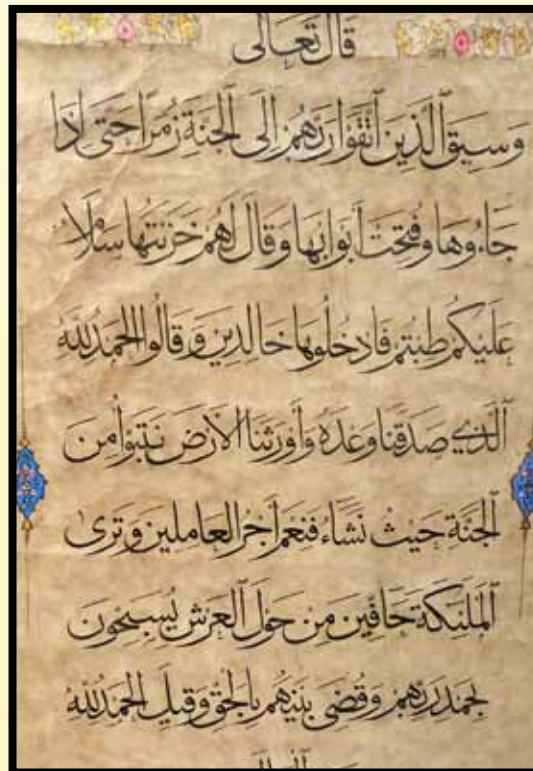 قال تعالى
وَسِيقَ ٱلَّذِينَ ٱتَّقَوْا رَبَّهُمْ إِلَى ٱلْجَنَّةِ زُمَرًا حَتَّى إِذَا
جَاءُوهَا وَفُتِحَتْ أَبْوَابُهَا وَقَالَ لَهُمْ خَزَنَتُهَا سَلَامٌ
عَلَيْكُمْ طِبْتُمْ فَادْخُلُوهَا خَالِدِينَ وَقَالُوا الْحَمْدُ لِلَّهِ
ٱلَّذِي صَدَقَنَا وَعْدَهُ وَأَوْرَثَنَا الْأَرْضَ نَتَبَوَّأُ مِنَ
ٱلْجَنَّةِ حَيْثُ نَشَاءُ فَنِعْمَ أَجْرُ الْعَامِلِينَ وَتَرَى
ٱلْمَلَٰئِكَةَ حَافِّينَ مِنْ حَوْلِ ٱلْعَرْشِ يُسَبِّحُونَ
بِحَمْدِ رَبِّهِمْ وَقُضِيَ بَيْنَهُمْ بِالْحَقِّ وَقِيلَ الْحَمْدُ لِلَّهِ